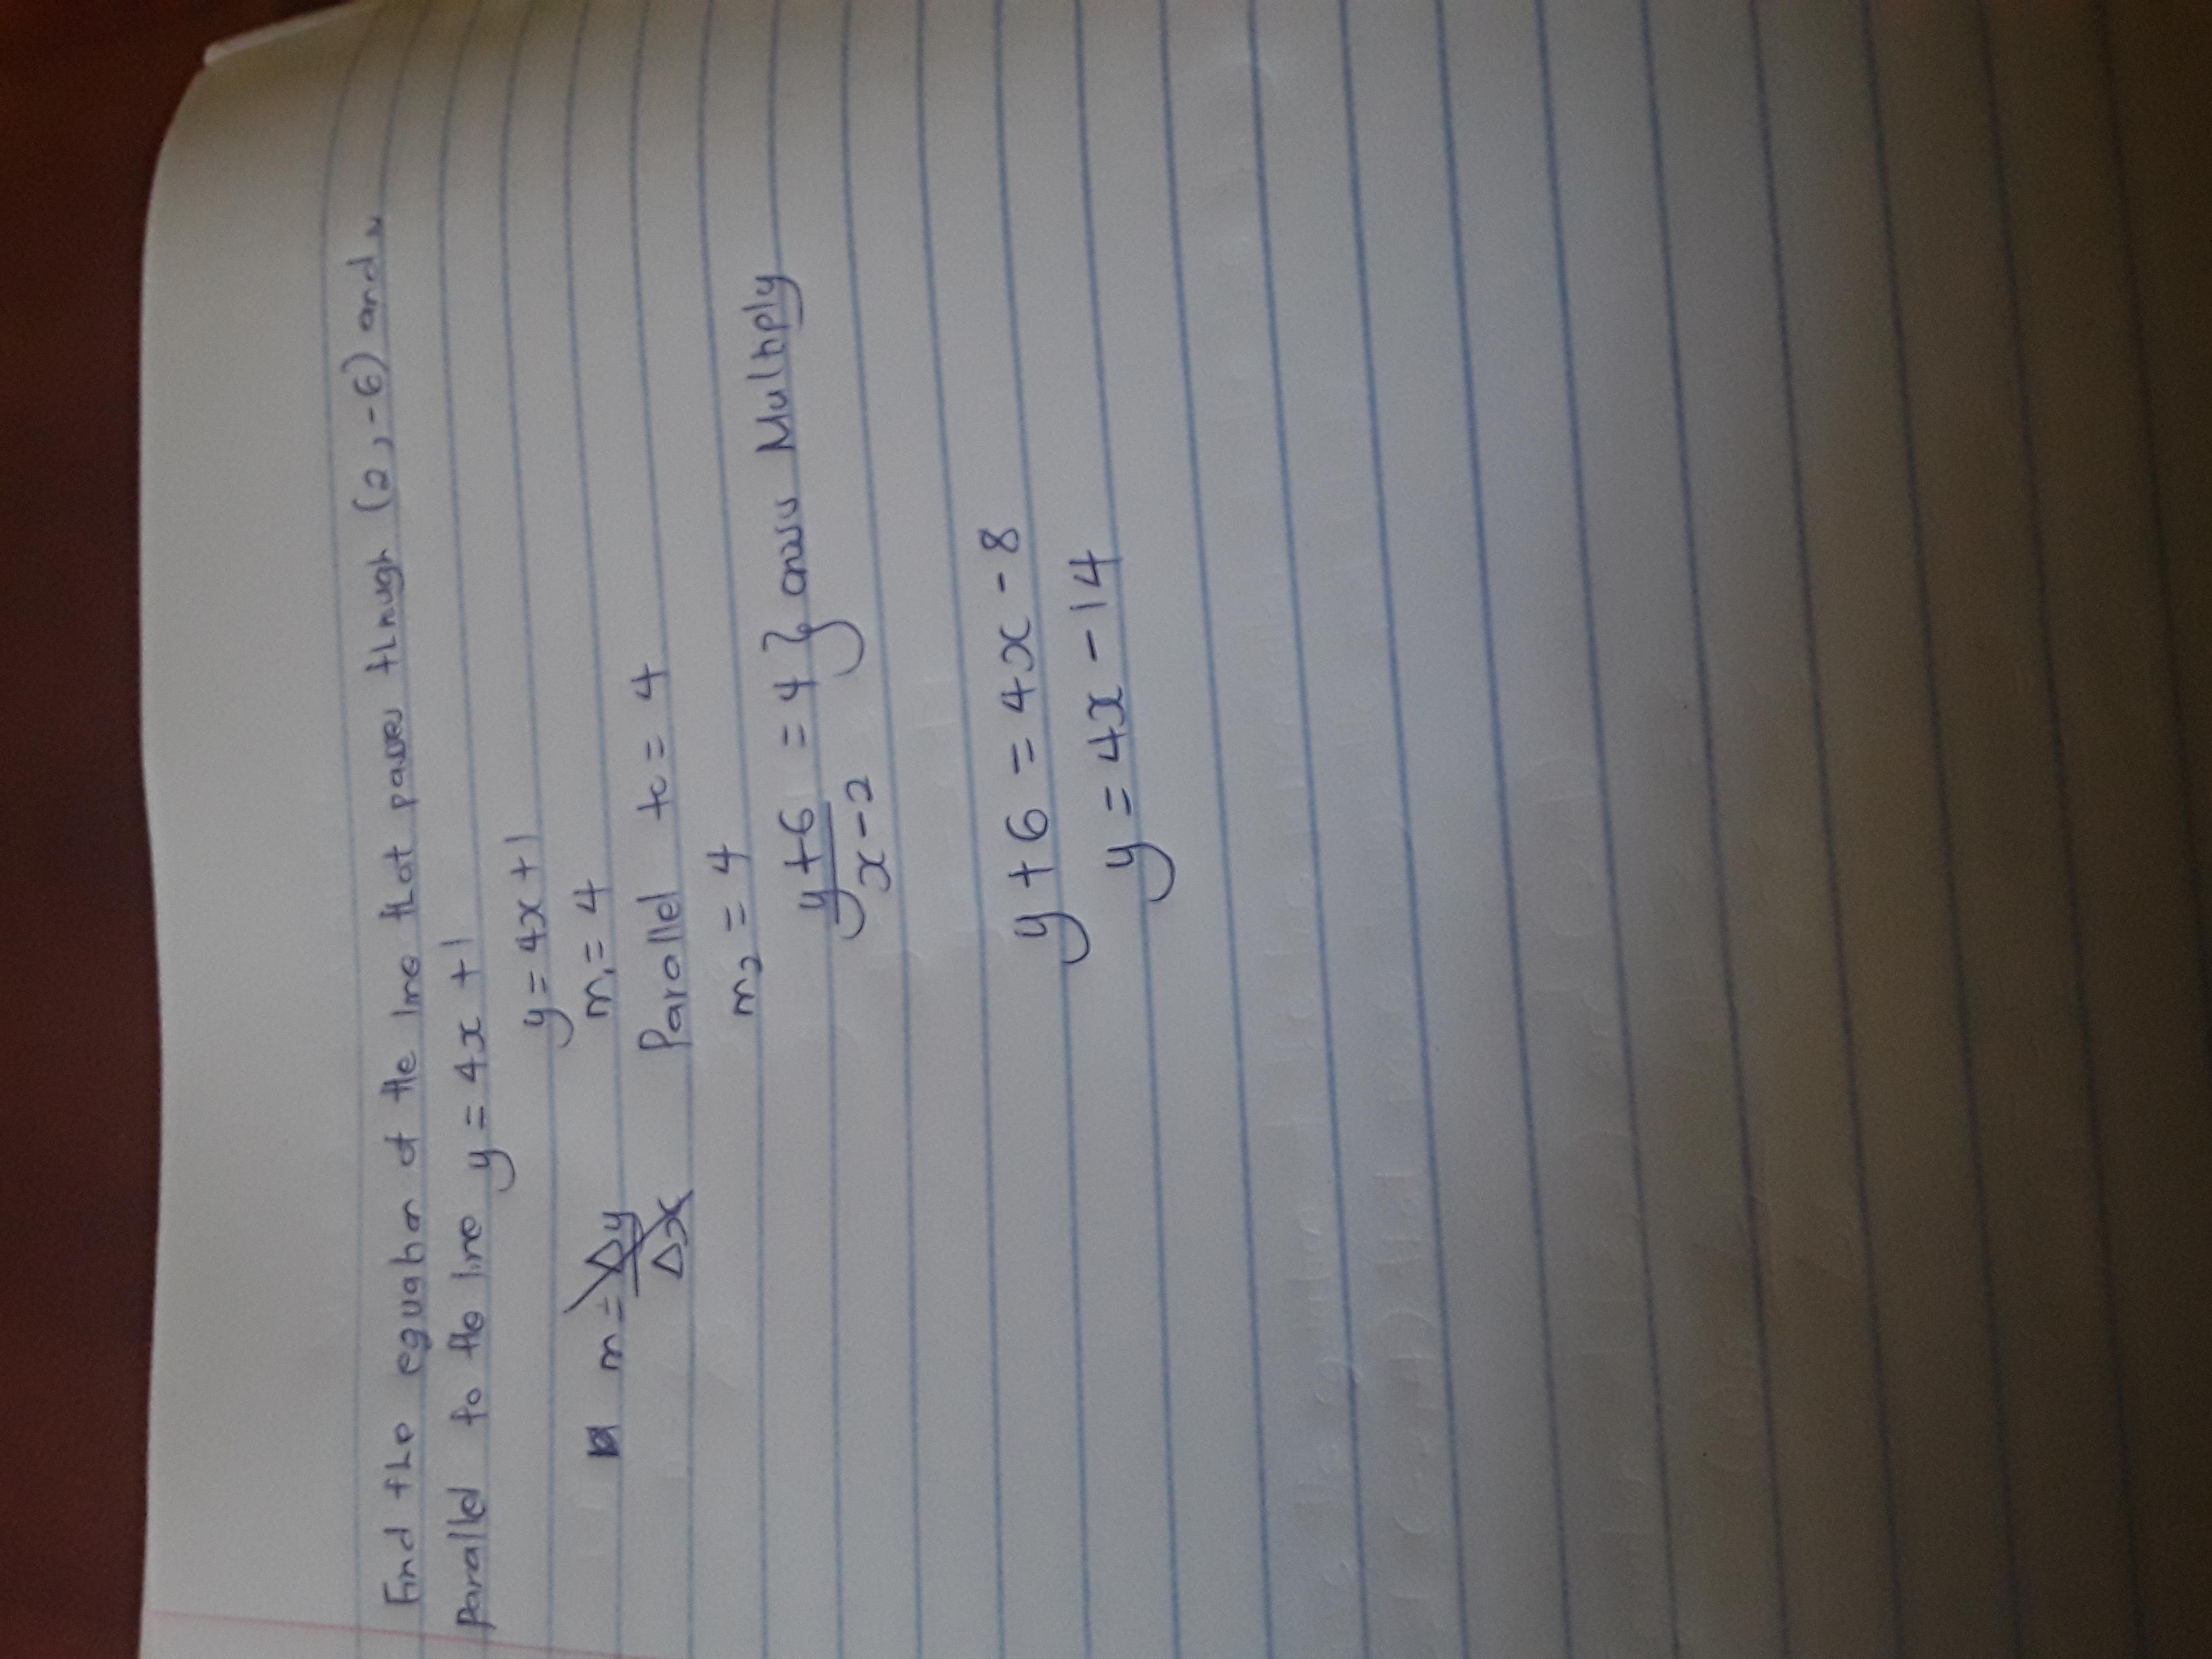 Find the equation of the line that passes through (2, -6) and is
parallel to the line y = 4x + 1
y = 4x + 1
m = Δy/Δx
m₁ = 4
Parallel to = 4
m₂ = 4
y + 6 / x - 2 = 4 } cross Multiply
y + 6 = 4x - 8
y = 4x - 14